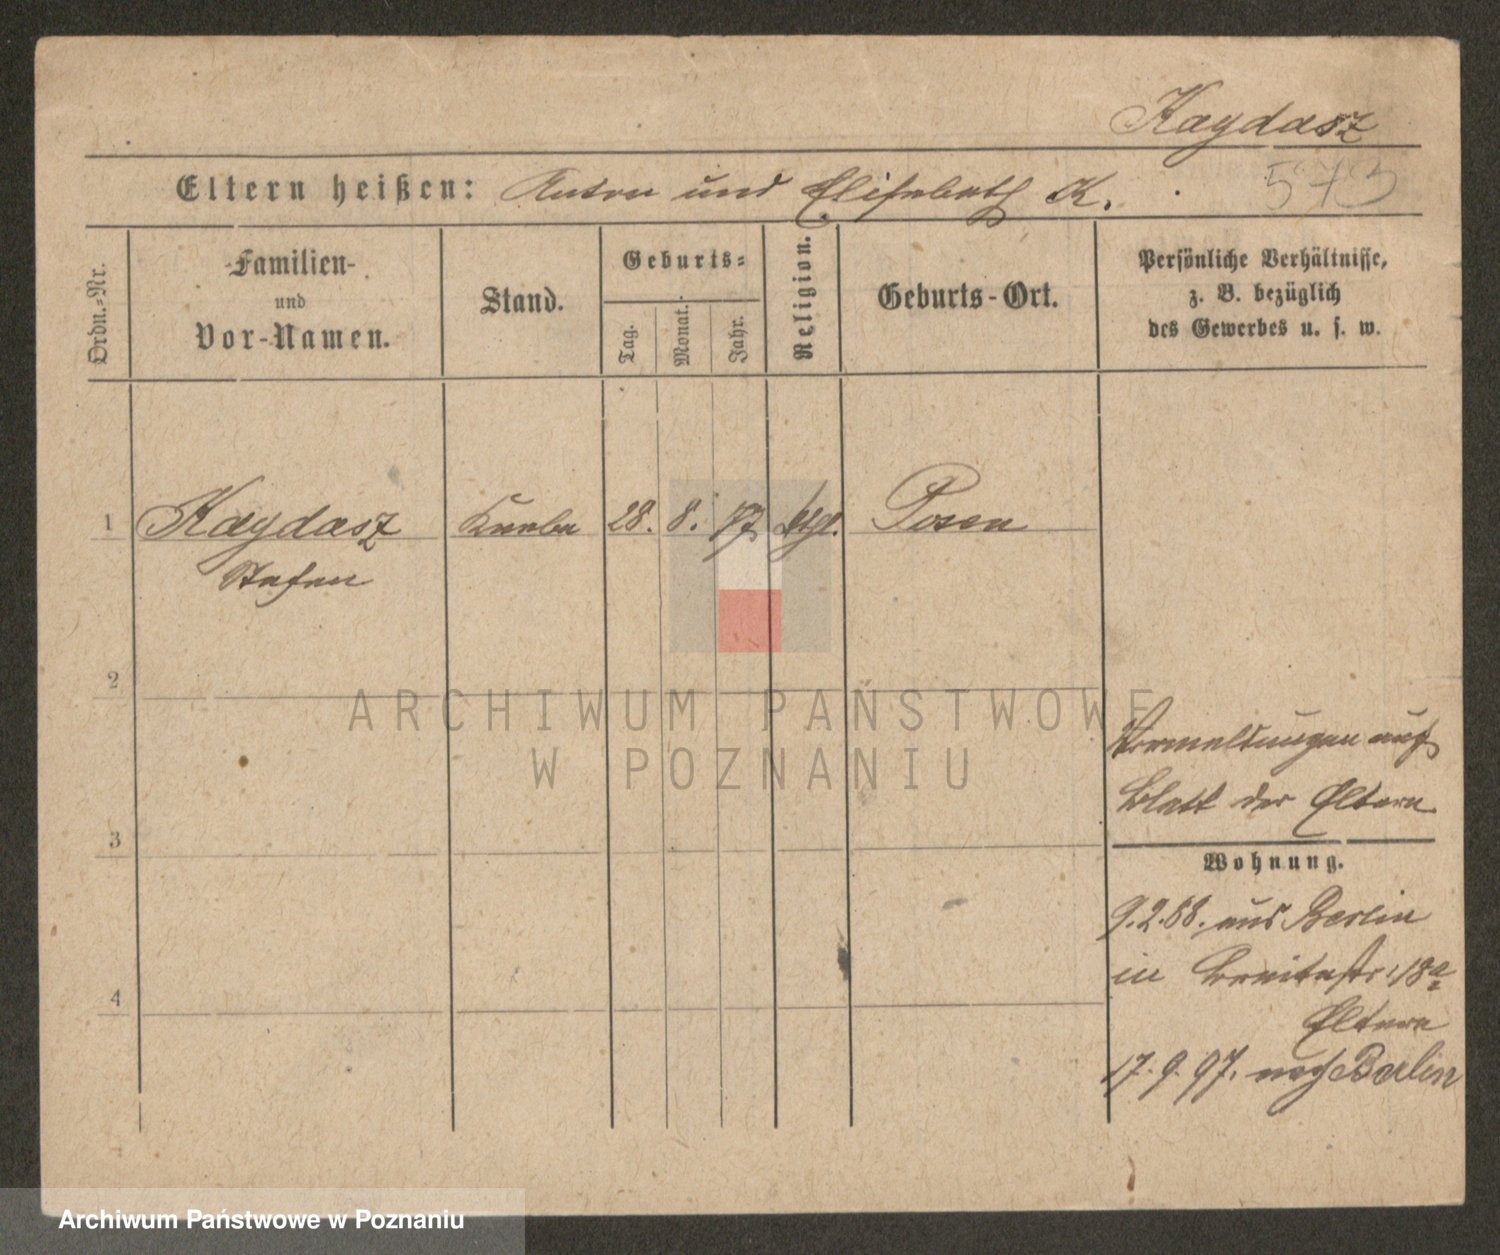 Kaydasz
573
Eltern heißen: Anton und Elisabeth K.
Ordn.-Nr.
Familien-
und
Vor-Namen.
Stand.
Geburts-
Tag.
Monat.
Jahr.
Religion.
Geburts-Ort.
Persönliche Verhältnisse,
z. B. bezüglich
des Gewerbes u. s. w.
1 Kaydasz Knabe 28. 8. 77 ktgl. Posen
Stefan
2
ARCHIWUM PAŃSTWOWE
W POZNANIU
Vermeldungen auf
Blatt der Eltern
3
Wohnung.
9.2.88. aus Berlin
in Breitestr: 18a
4
Eltern
17.9.97. nach Berlin
Archiwum Państwowe w Poznaniu